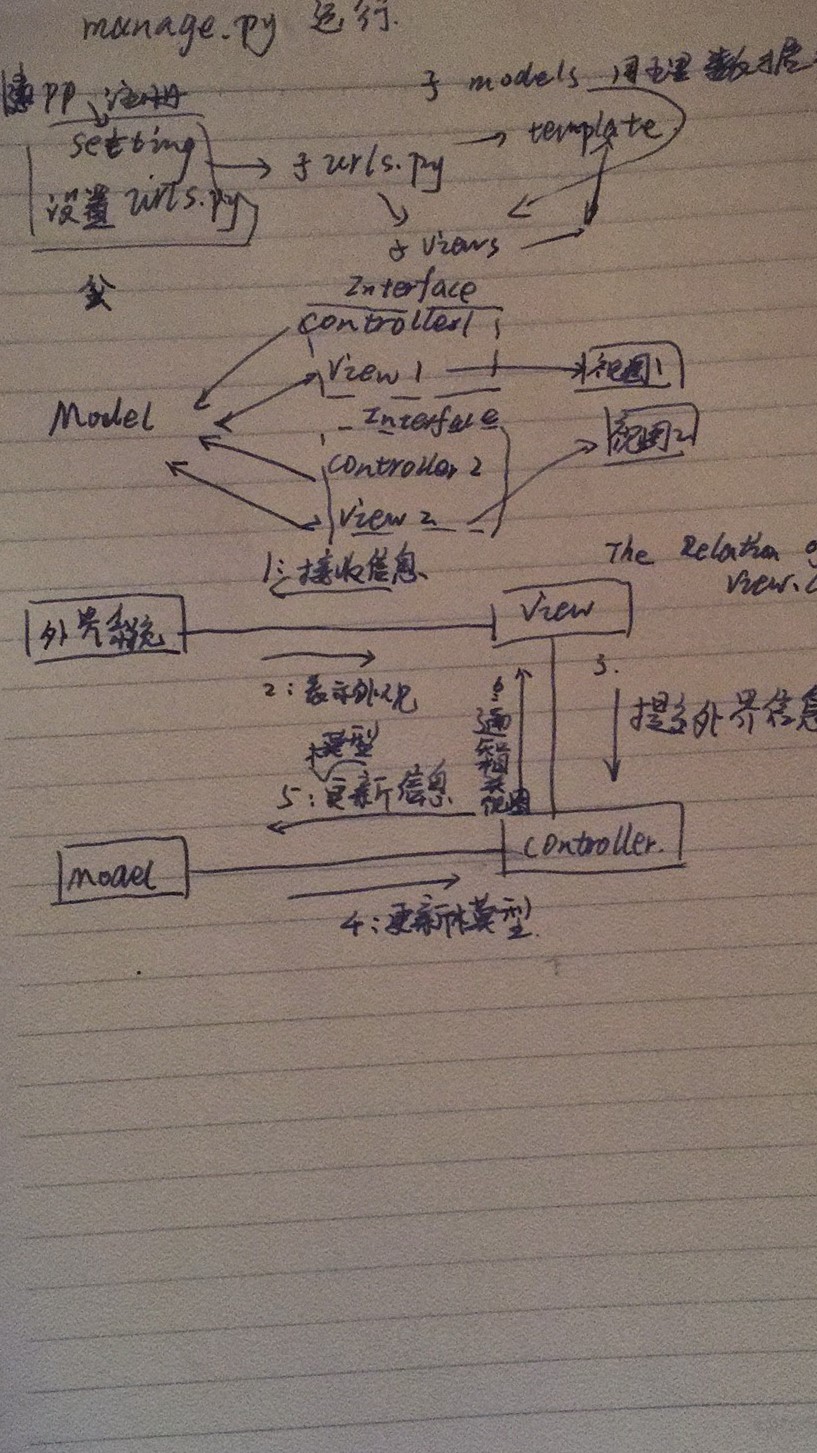 manage.py 运行.
子 models 用主
PP 注册
setting
设置 urls.py
子 urls.py
template
子 views
父
Interface
controller1
view 1
视图1
Model
Interface
controller 2
视图2
view 2
The Relation
view.
1: 接收信息
外界系统
view
2: 表示外观
3.
提交外界信息
6 通知相关视图
模型
5: 更新信息
model
controller.
4: 更新模型.